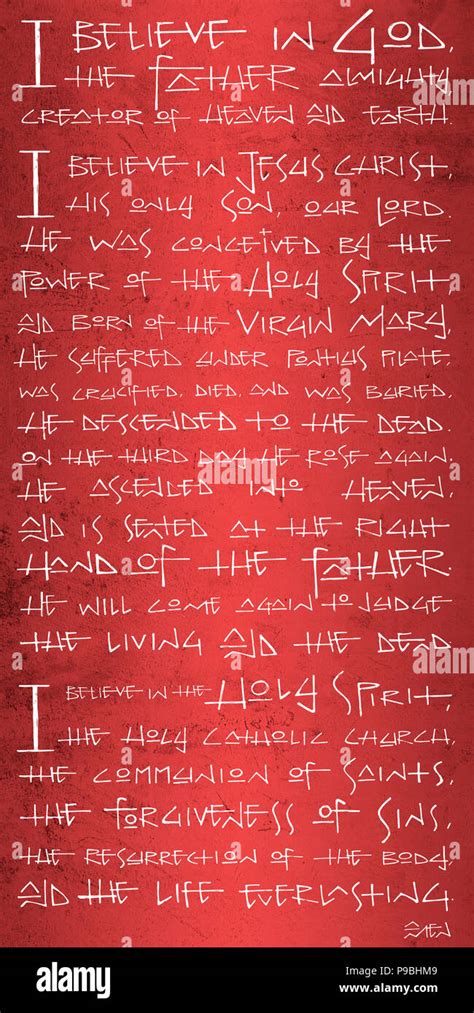 I BELIEVE IN GOD,
THE FATHER ALMIGHTY,
CREATOR OF HEAVEN AND EARTH.
I BELIEVE IN JESUS CHRIST,
HIS ONLY SON, OUR LORD.
HE WAS CONCEIVED BY THE
POWER OF THE HOLY SPIRIT,
AND BORN OF THE VIRGIN MARY,
HE SUFFERED UNDER PONTIUS PILATE,
WAS CRUCIFIED, DIED, AND WAS BURIED.
HE DESCENDED TO THE DEAD.
ON THE THIRD DAY HE ROSE AGAIN.
HE ASCENDED INTO HEAVEN,
AND IS SEATED AT THE RIGHT
HAND OF THE FATHER.
HE WILL COME AGAIN TO JUDGE
THE LIVING AND THE DEAD.
I BELIEVE IN THE HOLY SPIRIT,
THE HOLY CATHOLIC CHURCH,
THE COMMUNION OF SAINTS,
THE FORGIVENESS OF SINS,
THE RESURRECTION OF THE BODY,
AND THE LIFE EVERLASTING.
AMEN
alamy stock photo
a alamy
alamy
Image ID: P9BHM9
www.alamy.com